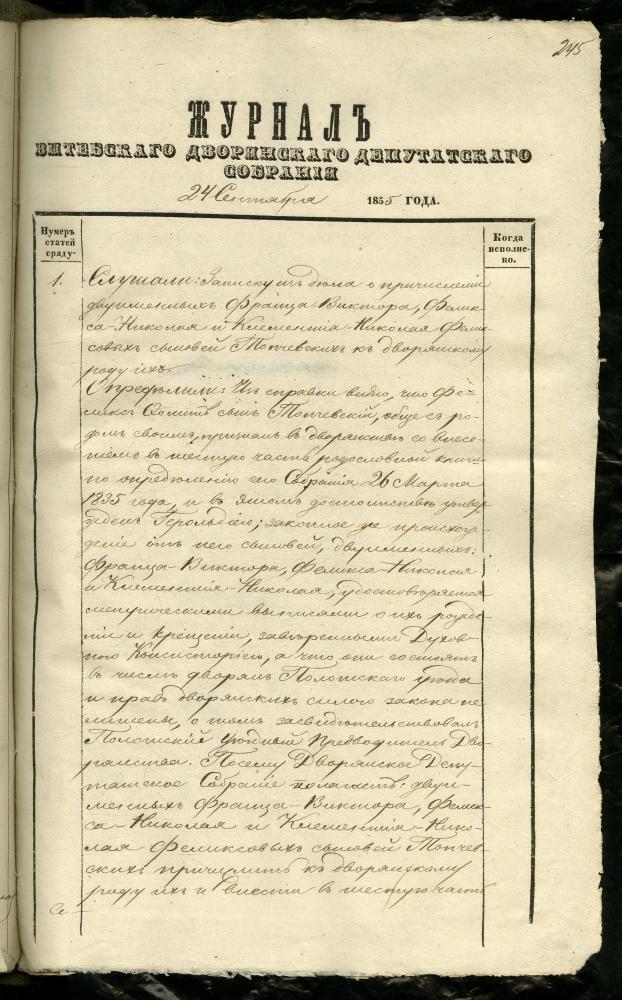 245
ЖУРНАЛЪ
ВИТЕБСКАГО ДВОРЯНСКАГО ДЕПУТАТСКАГО
СОБРАНІЯ
24 Сентября 1855 ГОДА.
Нумеръ
статей
сряду.
Когда
исполне-
но.
1. Слушали: Записку изъ дѣла о причисленіи
двуименныхъ Франца-Виктора, Феликс-
са-Николая и Клементія-Николая Фелик-
совыхъ сыновей Топчевскихъ къ дворянскому
роду ихъ.
Опредѣлили: Изъ справки видно, что Фе-
ликсъ сынъ Топчевскій, обще съ ро-
домъ своимъ, признанъ въ дворянствѣ со внесе-
ніемъ въ шестую часть родословной книги
по опредѣленію сего Собранія 26 Марта
1835 года, и въ этомъ достоинствѣ утвер-
жденъ Герольдіею; законное же происхож-
деніе отъ него сыновей, двуименныхъ:
Франца-Виктора, Феликса-Николая
и Клементія-Николая, удостовѣряется
метрическими выписями о ихъ рожде-
ніи и крещеніи, завѣренными Духов-
ною Консисторіею, а что они состоятъ
въ числѣ дворянъ Полотскаго уѣзда
и правъ дворянскихъ силою закона не
лишены, о томъ засвидѣтельствовалъ
Полотскій Уѣздный Предводитель Дво-
рянства. Посему Дворянское Депу-
татское Собраніе полагаетъ: двуи-
менныхъ Франца-Виктора, Феликс-
са-Николая и Клементія-Нико-
лая Феликсовыхъ сыновей Топчев-
скихъ причислить къ дворянскому
роду ихъ и внести въ шестую часть